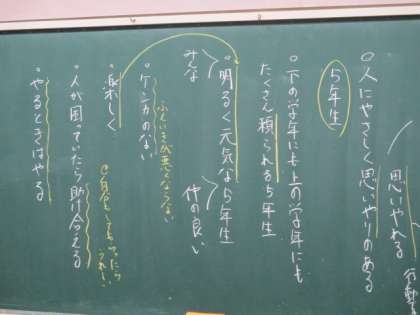 思いやれる
行動
〇人にやさしく思いやりのある
5年生
〇下の学年にも上の学年にも
たくさん頼られる5年生
・明るく元気な5年生
みんな
仲の良い
・ケンカのない
ふんいきが悪くならない
・楽しく
・人が困っていたら助け合える
自分もしてもらったら
うれしい
・やるときはやる